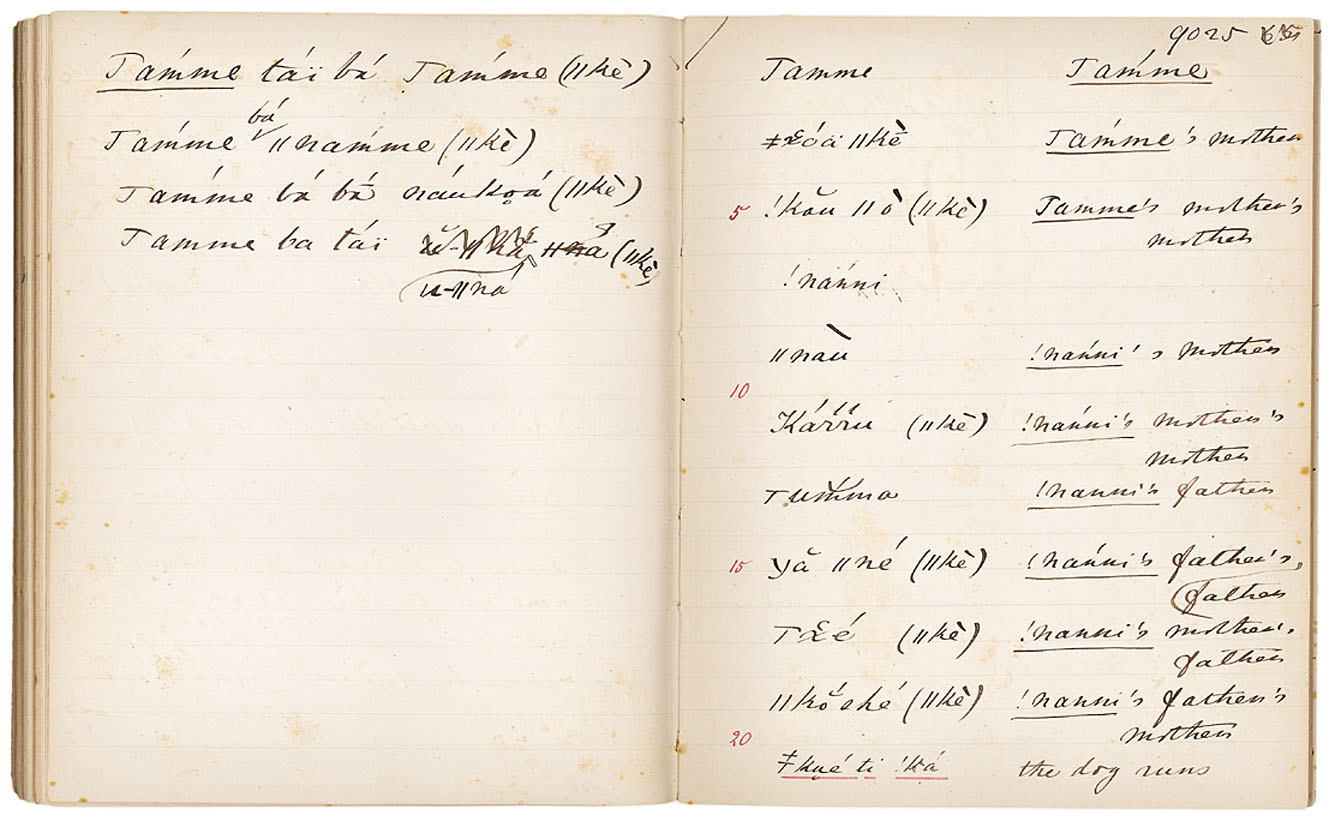 Tamme táï bá Tamme (ǁkè)
bá
Tamme ǁnamme (ǁkè)
Tamme bá bá náukoá (ǁkè)
Tamme ba táï (ǁkè)
u-ǁná
9025
Tamme Tamme
ǁkè Tamme's mother
5 !kǒu ǁò (ǁkè) Tamme's mother's
mother
!nánni
ǁnàu !nanni's mother
10
Kárru (ǁkè) !nanni's mother's
mother
Tumma !nanni's father
15 yǎ ǁné (ǁkè) !nanni's father's
father
(ǁkè) !nanni's mother's
father
ǁkóshé (ǁkè) !nanni's father's
mother
20
ǂkué ti !ká the dog runs